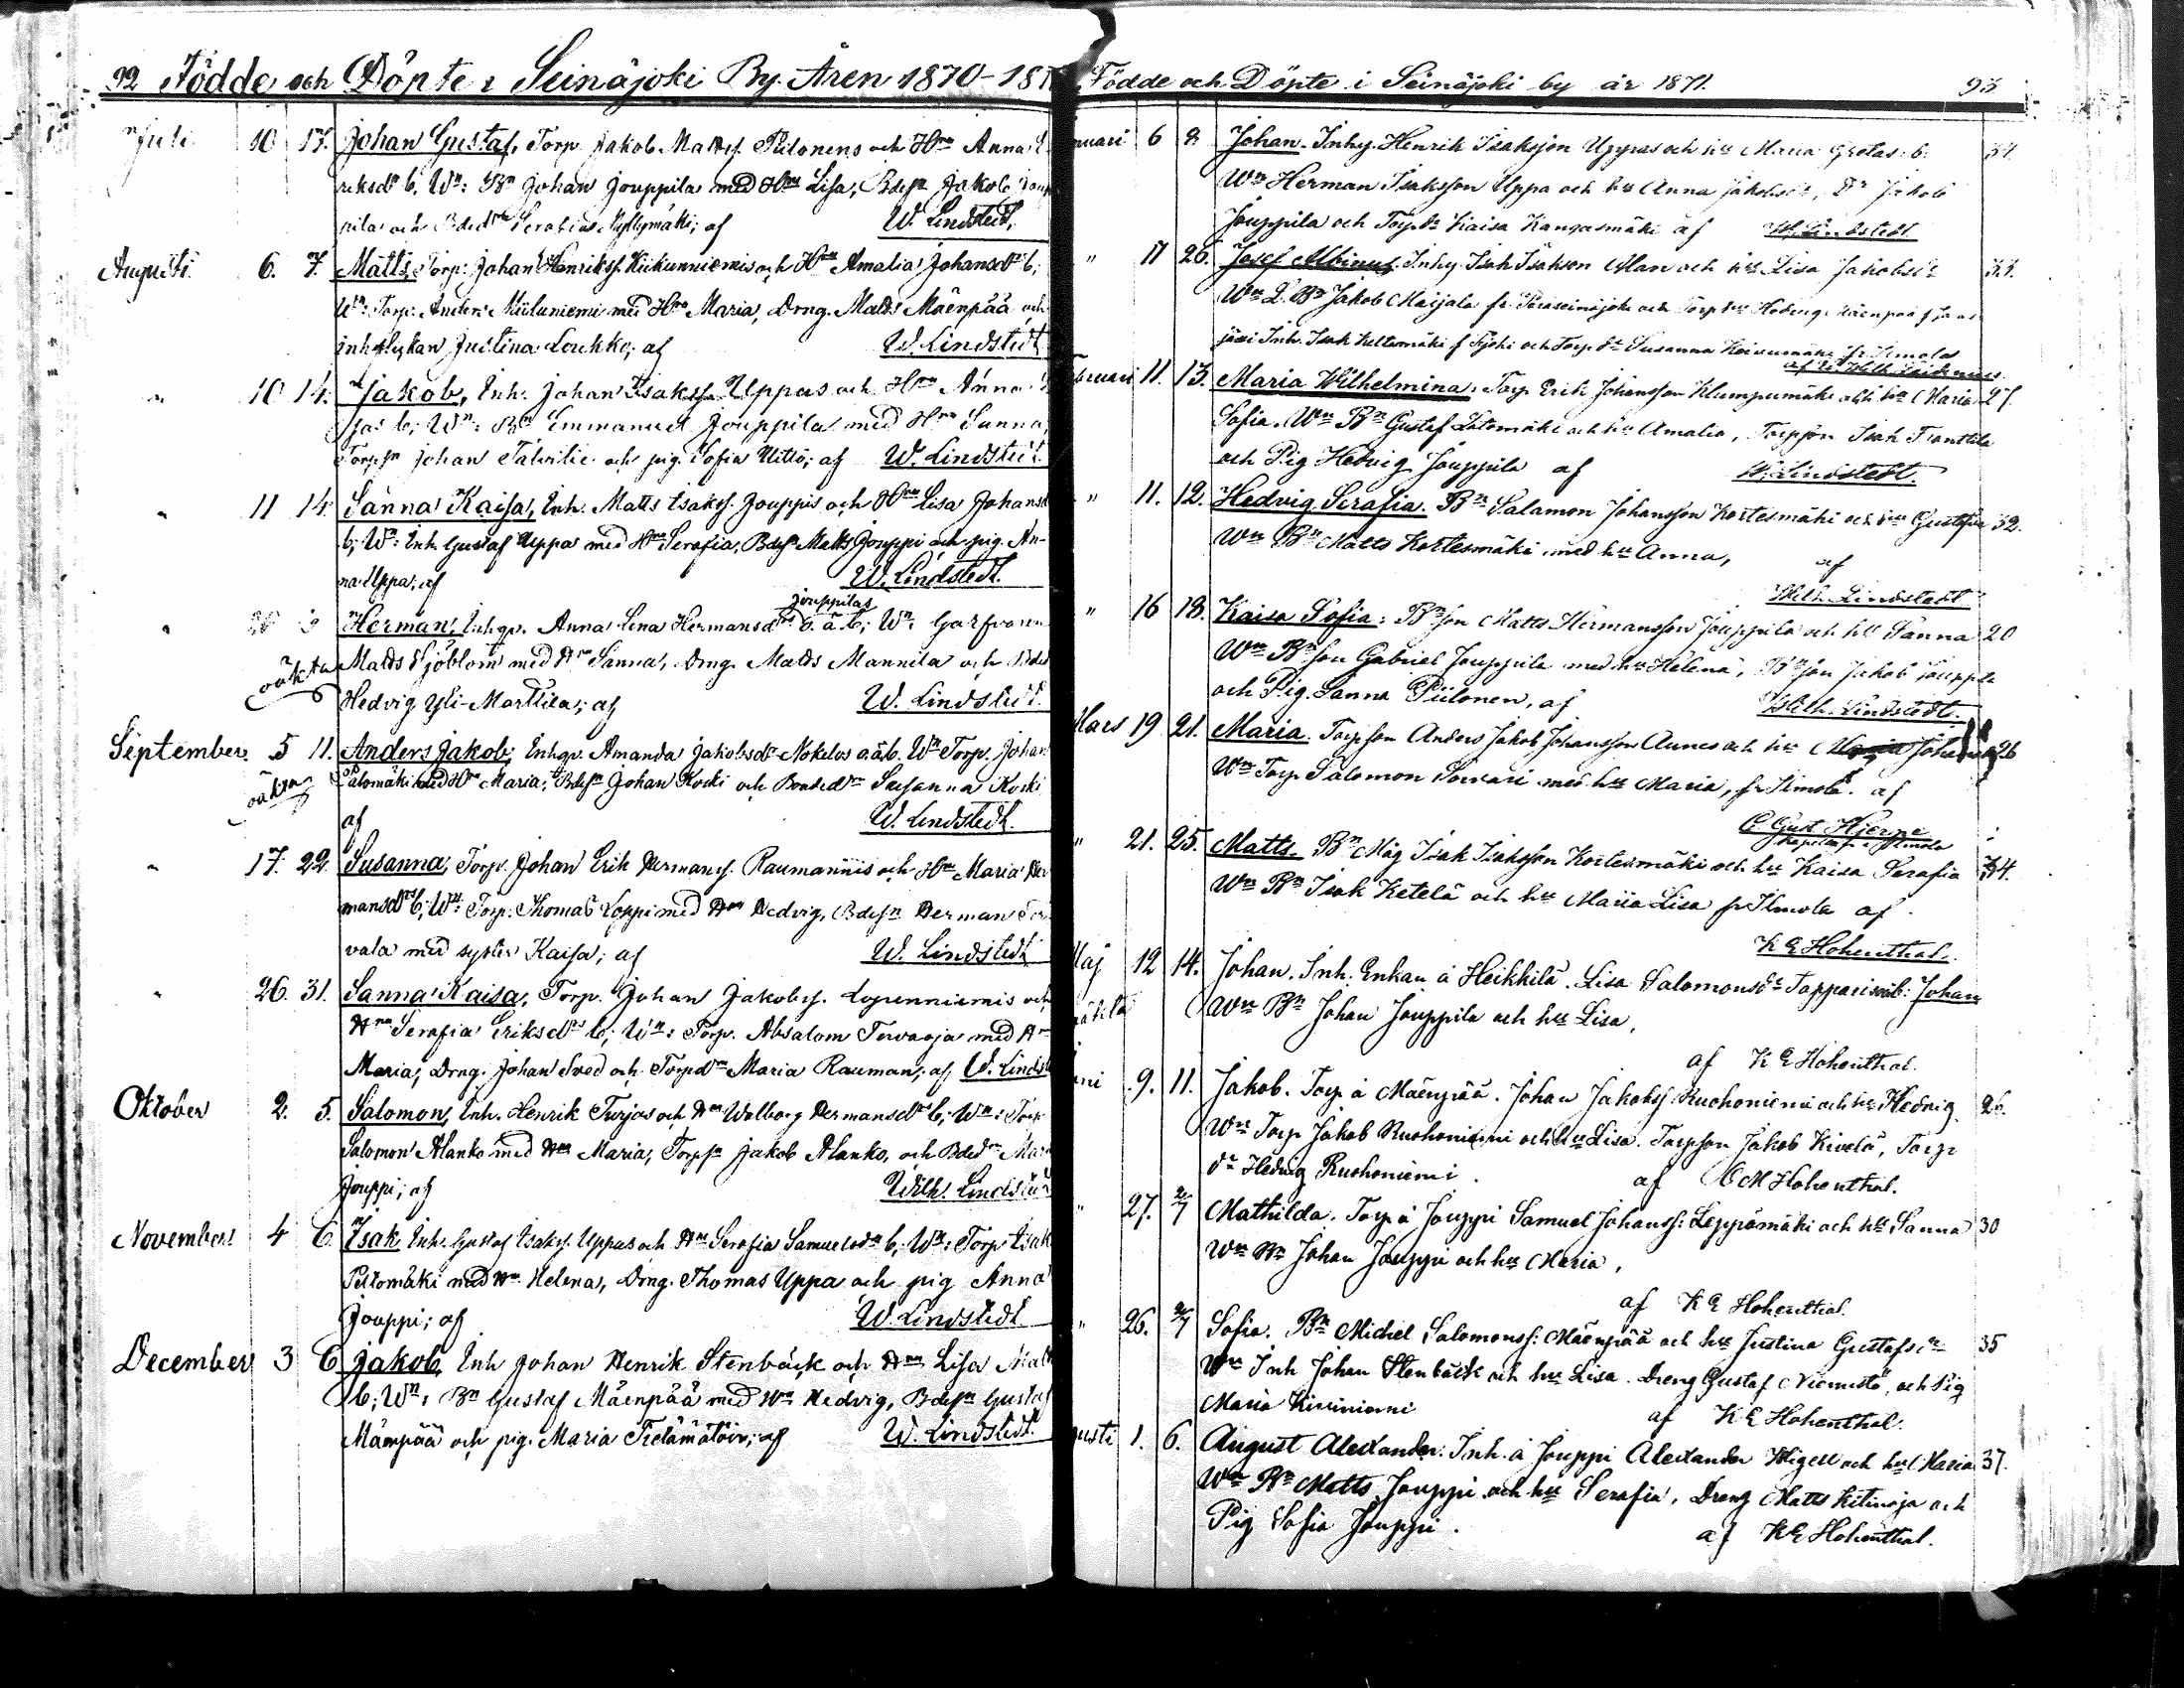 92 Födde och Döpte i Seinäjoki By Åren 1870-18
Juli 10 17. Johan Gustaf, Torp. Jakob Mattss. Piilonens och Hru Anna
riksdr b, Wn: Bn Johan Jouppila med Hru Lisa, Bdesn Jakob Joup
pila och Serafia af W. Lindstedt.
Augusti 6. 7. Matts, Torp: Johan Henrikss. och Hru Amalia Johansdr b;
Wn: Torp: Anders Miiluniemi med Hru Maria, Drng. Matts Mäenpää och
inh Justina Loukko; af W. Lindstedt
" 10 14. Jakob, Inh. Johan Isakss. Uppas och Hru Anna
b; Wn: Bn Emmanuel Jouppila med Hru Sanna,
Torpsn Johan och pig. Sofia af W. Lindstedt.
" 11 14. Sanna Kaisa, Inh. Matts Isakss. Jouppis och Hru Lisa Johans
b; Wn: Inh Gustaf Uppa med Hru Serafia, Bdesn Matts Jouppi och pig. An-
na Uppa; af W. Lindstedt.
jouppilas
" Herman, Inhqv. Anna Lena Hermansdr o. ä. b; Wn: Garfvaren
oäkta Matts Sjöblom med Hru Sanna, Drng. Matts Mannila och Bdedr
Hedvig Yli-Marttila; af W. Lindstedt.
September. 5 11. Anders Jakob; Inhqv. Amanda Jakobsdr Nokelas o.ä.b. Wn Torp. Johan
oäkta Latomäki med Hru Maria, Bdesn Johan Koski och Bondedr Susanna Koski
af W. Lindstedt.
" 17. 22 Susanna, Torp. Johan Erik Hermanss. Raumanniis och Hru Maria Her
mansdr b; Wn: Torp: Thomas Loppi med Hru Hedvig, Bdesn Herman Ter
vala med syster Kaisa; af W. Lindstedt
" 26. 31. Sanna Kaisa, Torp. Johan Jakobss. Lopenniemis och
Hru Serafia Eriksdr b; Wn: Torp. Absalom Tervaoja med Hr
Maria; Drng. Johan Sved och Torpdr Maria Rauman; af W. Linds
Oktober 2. 5. Salomon, Inh. Henrik Turjas och Hru Walborg Hermansdr b; Wn: Torp
Salomon Alanko med Hru Maria, Torpsn Jakob Alanko, och Bdedr Mar
Jouppi; af Wilh. Lindstedt
November 4 6 Isak Inh. Gustaf Isakss. Uppas och Hru Serafia Samuelsdr b; Wn: Torp Isak
med Hru Helena, Drng. Thomas Uppa och pig Anna
Jouppi; af W. Lindstedt
December 3 6. Jakob, Inh Johan Henrik Stenbäck och Hru Lisa Matt
b; Wn: Bn Gustaf Mäenpää med Hru Hedvig, Bdesn Gustaf
Mäenpää och pig. Maria af W. Lindstedt.
Födde och Döpte i Seinäjoki by år 1871. 93
nuari 6 8 Johan. Inhy. Henrik Isaksson Uppas och hu Maria Gretas. b.
Wn Herman Isaksson Uppa och hu Anna Jakobsdr, Dr Jakob
Jouppila och Torpdr Kaisa Kangasmäki af W. Lindstedt.
" 11 26. Josef Albinus. Inhy. Isak Isakson Alan och hu Lisa Jakobsdr
Wn L. Bn Jakob Maijala fr. Peräseinäjoki och Torp hu Hedvig Mäenpää f
järvi Inh. Isak Keltamäki f Sjoki och Torp dr Susanna Koivumäki fr. Ilmola
bruari 11. 13. Maria Wilhelmina, Torp Erik Johansson Klumpumäki och hu Maria 27.
Sofia. Wn Bn Gustaf Latomäki och hu Amalia, Torpson Isak Franttila
och Pig Hedvig Jouppila af W. Lindstedt.
" 11. 12. Hedvig Serafia. Bn Salamon Johansson Kortesmäki och hu Gustafva 32.
Wn Bn Matts Kortesmäki med hu Anna, af
Wilh. Lindstedt
" 16 18. Kaisa Sofia: Bnson Matts Hermansson Jouppila och hu Sanna 20
Wn Bnson Gabriel Jouppila med hu Helena, Bnson Jakob Jouppila
och Pig. Sanna Piilonen, af Wilh. Lindstedt.
Mars 19 21. Maria. Torpson Anders Jakob Johansson Aunes och hu Maria 26
Wn Torp Salomon Sorvari med hu Maria, fr Ilmola. af
C Gust Hjerpe
Kapellan i Ilmola
" 21. 25. Matts. Bn Måg Isak Isaksson Kortesmäki och hu Kaisa Serafia 34.
Wn Bn Isak Ketelä och hu Maria Lisa fr Ilmola af.
K E Hohenthal.
Maj 12 14. Johan. Inh. Enkan å Heikkilä. Lisa Salomonsdr b: Johan
Wn Bn Johan Jouppila och hu Lisa,
af K E Hohenthal.
ni 9. 11. Jakob. Torp å Mäenpää. Johan Jakobss Ruohoniemi och hu Hedvig 26.
Wn Torp Jakob Ruohoniemi och hu Lisa. Torpson Jakob Kivelä, Torp
dr Hedvig Ruohoniemi. af C M Hohenthal.
" 27. 2/7 Mathilda. Torp å Jouppi Samuel Johanss: Leppämäki och hu Sanna 30
Wn Bn Johan Jouppi och hu Maria,
af K E Hohenthal.
" 26. Sofia. Bn Michel Salomonss: Mäenpää och hu Justina Gustafsdr 35
Wn Inh Johan Stenbäck och hu Lisa. Dreng Gustaf Niemistö, och Pig
Maria af K E Hohenthal.
gusti 1. 6. August Alexander: Inh. å Jouppi Alexander Wigell och hu Maria 37.
Wn Bn Matts Jouppi och hu Serafia, Dreng Matts Kitinoja och
Pig Sofia Jouppi. af K E Hohenthal.